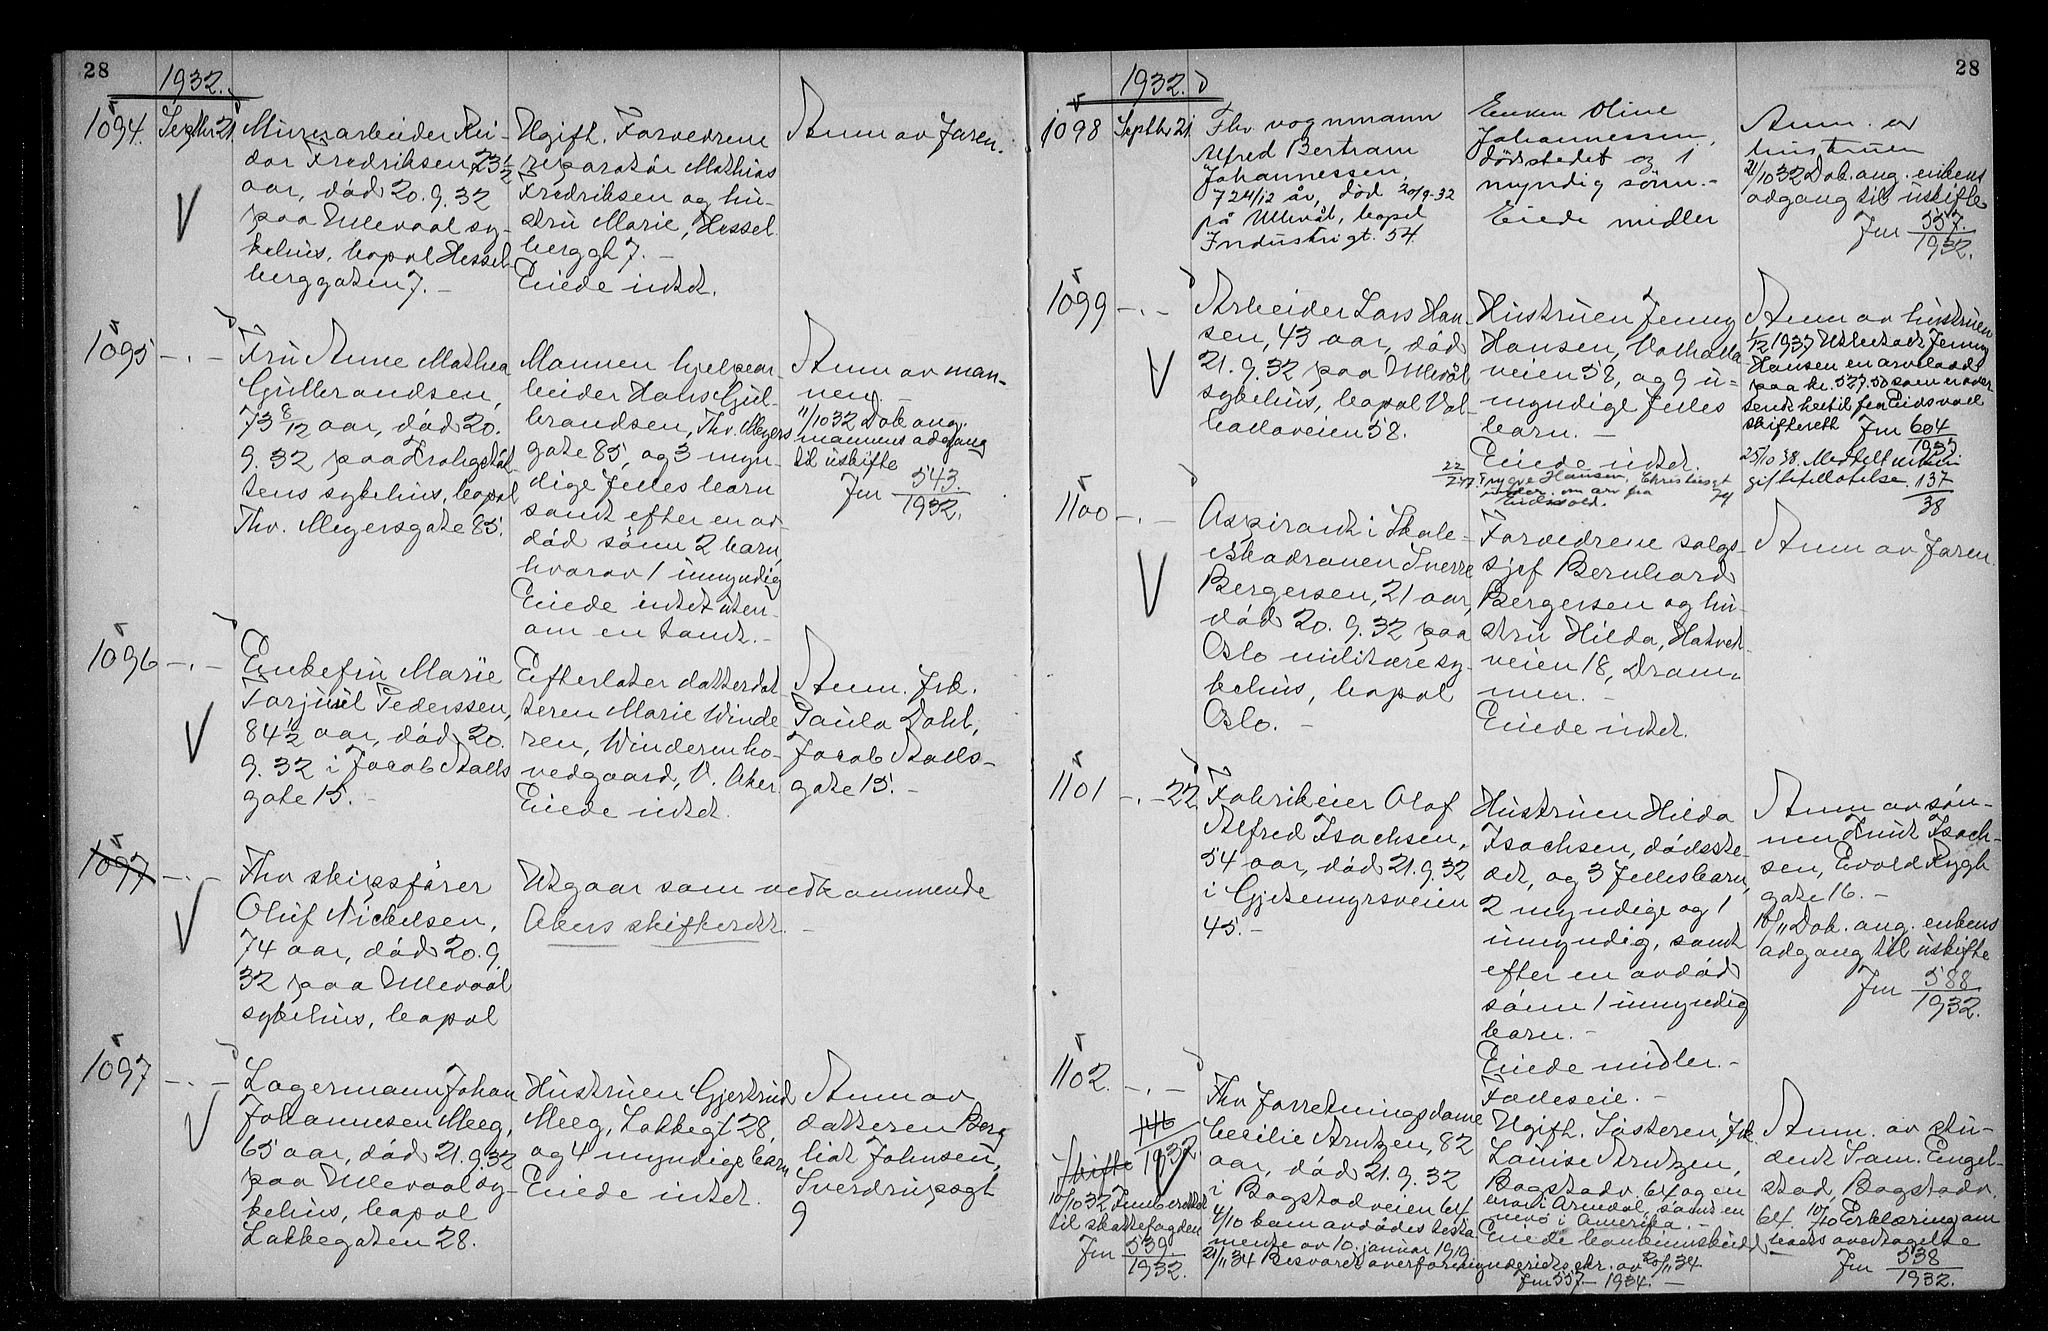 28
1932.
1094. Septbr 21.
Murerarbeider Rei-
dar Fredriksen, 23 1/2
aar, død 20.9.32
paa Ullevaal sy-
kehus, bopæl Hessel-
berggaten 7. -
Ugift. Forældrene
reparatør Mathias
Fredriksen og hu-
stru Marie, Hessel-
berggt 7. -
Eiede intet.
Anm. av faren.
1095 -.-
Fru Anne Mathea
Gulbrandsen,
73 8/12 aar, død 20.
9.32 paa Krohgstøt-
tens sykehus, bopæl
Thv. Meyersgate 85.
Mannen hjelpear-
beider Hans Gul-
brandsen, Thv. Meyers
gate 85, og 3 myn-
dige fælles barn
samt efter en av-
død sønn 2 barn,
hvorav 1 umyndig
Eiede intet uten-
om en tomt. -
Anm. av man-
nen. -
11/10 32 Dok. ang.
mannens adgang
til uskifte
Jnr 543
1932.
1096 -.-
Enkefru Marie
Torjusil Pederssen,
84 1/2 aar, død 20.
9.32 i Jacob Aalls
gate 15. -
Efterlater datterdat-
teren Marie Winde-
ren, Winderen ho-
vedgaard, V. Aker.
Eiede intet.
Anm. frk.
Paula Dahl,
Jacob Aalls-
gate 15. -
1097 -.-
Fhv skipsfører
Oluf Nickelsen,
74 aar, død 20.9.
32 paa Ullevaal
sykehus, bopæl
Utgaar som vedkommende
Akers skifterett. -
1097 -.-
Lagermann Johan
Johannesen Meeg,
65 aar, død 21.9.32
paa Ullevaal sy-
kehus, bopæl
Lakkegaten 28.
Hustruen Gjertrud
Meeg, Lakkegt 28,
og 4 myndige barn
Eiede intet.
Anm av
datteren Borg-
hild Johnsen,
Sverdrupsgt
9
28
1932.
1098 Septbr 21.
Fhv vognmann
Alfred Bertram
Johannessen,
72 4/12 år, død 20/9-32
på Ullevål, bopel
Industrigt. 54.
Enken Oline
Johannessen,
dødsstedet og 1
myndig sønn. -
Eiede midler
Anm. av
hustruen
21/10 32 Dok. ang. enkens
adgang til uskifte
Jnr 557.
1932.
1099 -.-
Arbeider Lars Han-
sen, 43 aar, død
21.9.32 paa Ullevål
sykehus, bopæl Val-
hallaveien 58.
Hustruen Jenny
Hansen, Valhalla
veien 58, og 9 u-
myndige fælles
barn. -
Eiede intet.
Trygve Hansen, Christiesgt
74
om arv fra
Eidsvold.
Anm av hustruen
1/12 1937 Utbetalt Jenny
Hansen en arvelodd
paa kr. 527.50 som er over-
sendt hertil fra Eidsvoll
skifterett Jnr 604
1937
25/10 38. Meddelt
giftefillatelse. 137
38
1100 -.-
Aspirant i Skole-
eskadronen Sverre
Bergersen, 21 aar,
død 20.9.32 paa
Oslo militære sy-
kehus, bopæl
Oslo. -
Forældrene salgs-
sjef Bernhard
Bergersen og hu-
stru Hilda, Hatvet-
veien 18, Dram-
men. -
Eiede intet.
Anm av faren.
1101 -.- 22.
Fabrikeier Olaf
Alfred Isachsen,
54 aar, død 21.9.32
i Gjetemyrsveien
45. -
Hustruen Hilda
Isachsen, dødsste-
det, og 3 fellesbarn,
2 myndige og 1
umyndig, samt
efter en avdød
sønn 1 umyndig
barn. -
Eiede midler. -
Fælleseie. -
Anm av søn-
nen Knut Isach-
sen, Evald Rygh
gate 16. -
10/11 Dok. ang. enkens
adgang til uskifte
Jnr 588
1932.
1102. -.-
1932
Skifte
10/10 32 Innberettet
til skattefogden
Jnr 539
1932.
Fhv forretningsdame
Cecilie Arntzen, 82
aar, død 21.9.32
i Bogstadveien 64
4/10 kom avdødes testa-
mente av 10. januar 1919.
21/11 34 Besvaret overformynderiets skr. av 20/11 34
Jnr 557 - 1934. -
Ugift. Søsteren, frk.
Louise Arntzen,
Bogstadv. 64 og en
bror i Arendal, samt en
nevø i Amerika. -
Eiede bankinnskudd
Anm. av stu-
dent Sam. Engel-
stad, Bogstadv.
64. 10/10 Erklæring om
boets overtagelse
Jnr 538
1932.